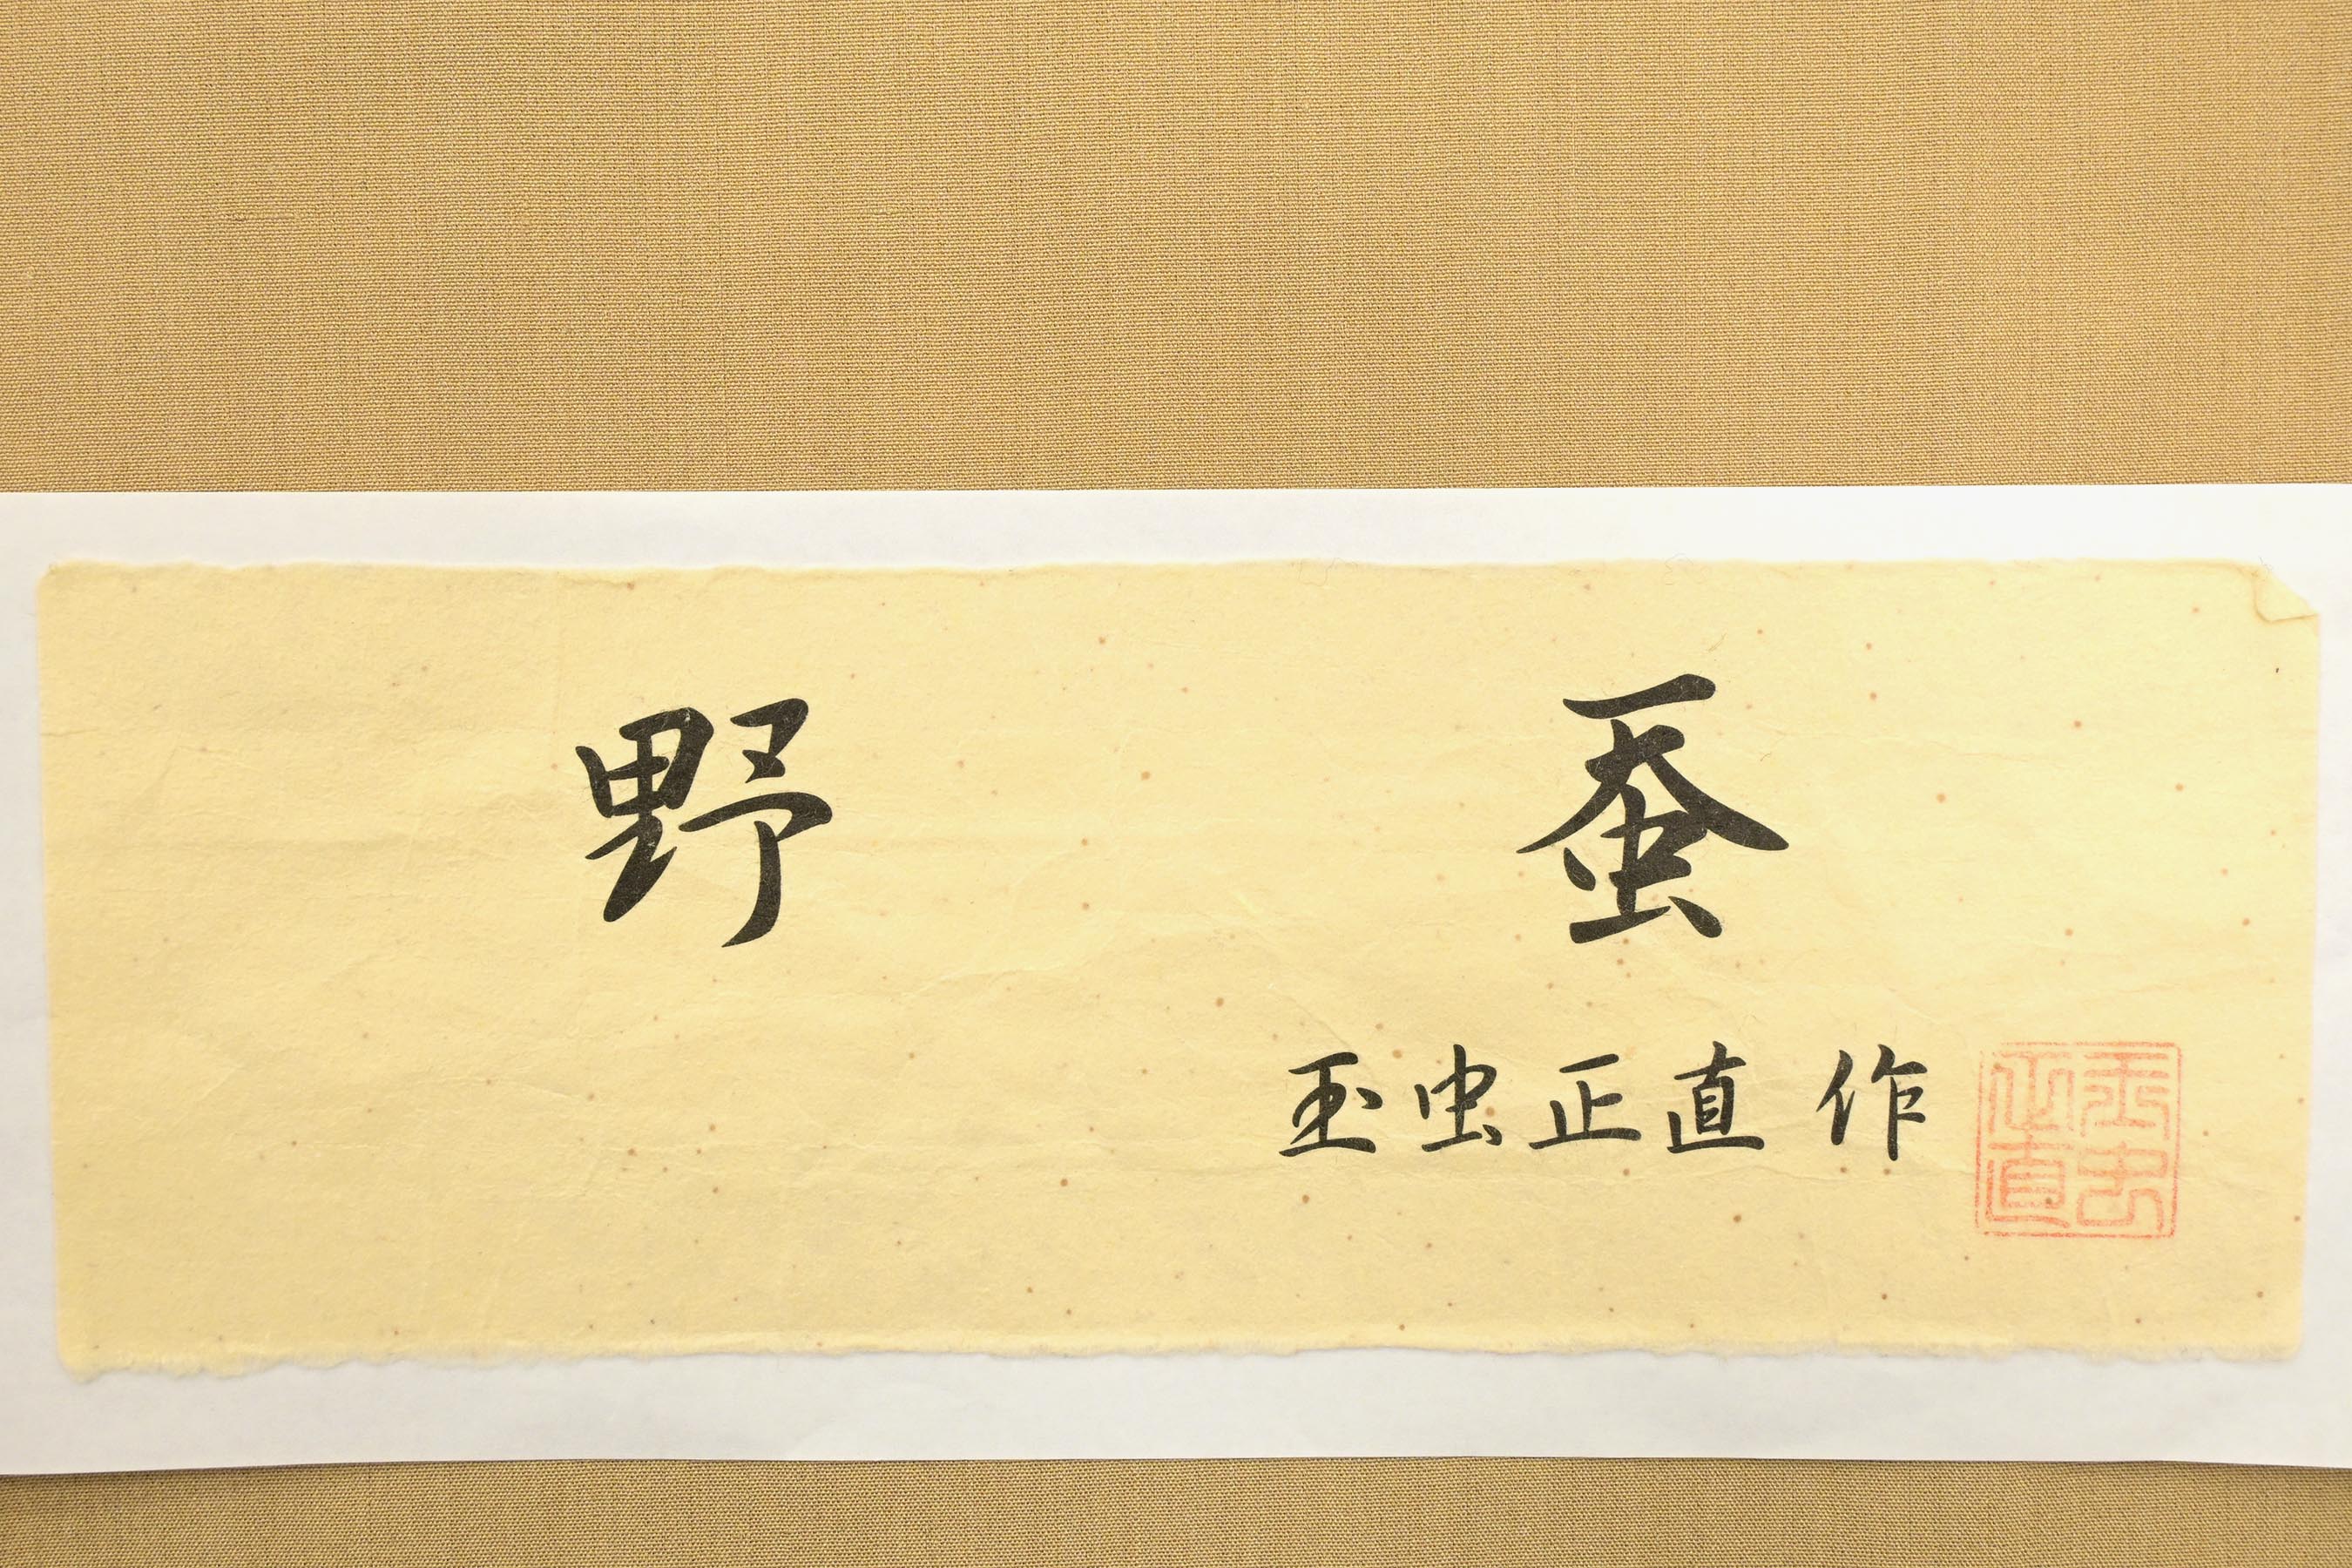 野 蚕
玉虫正直 作
玉虫正直